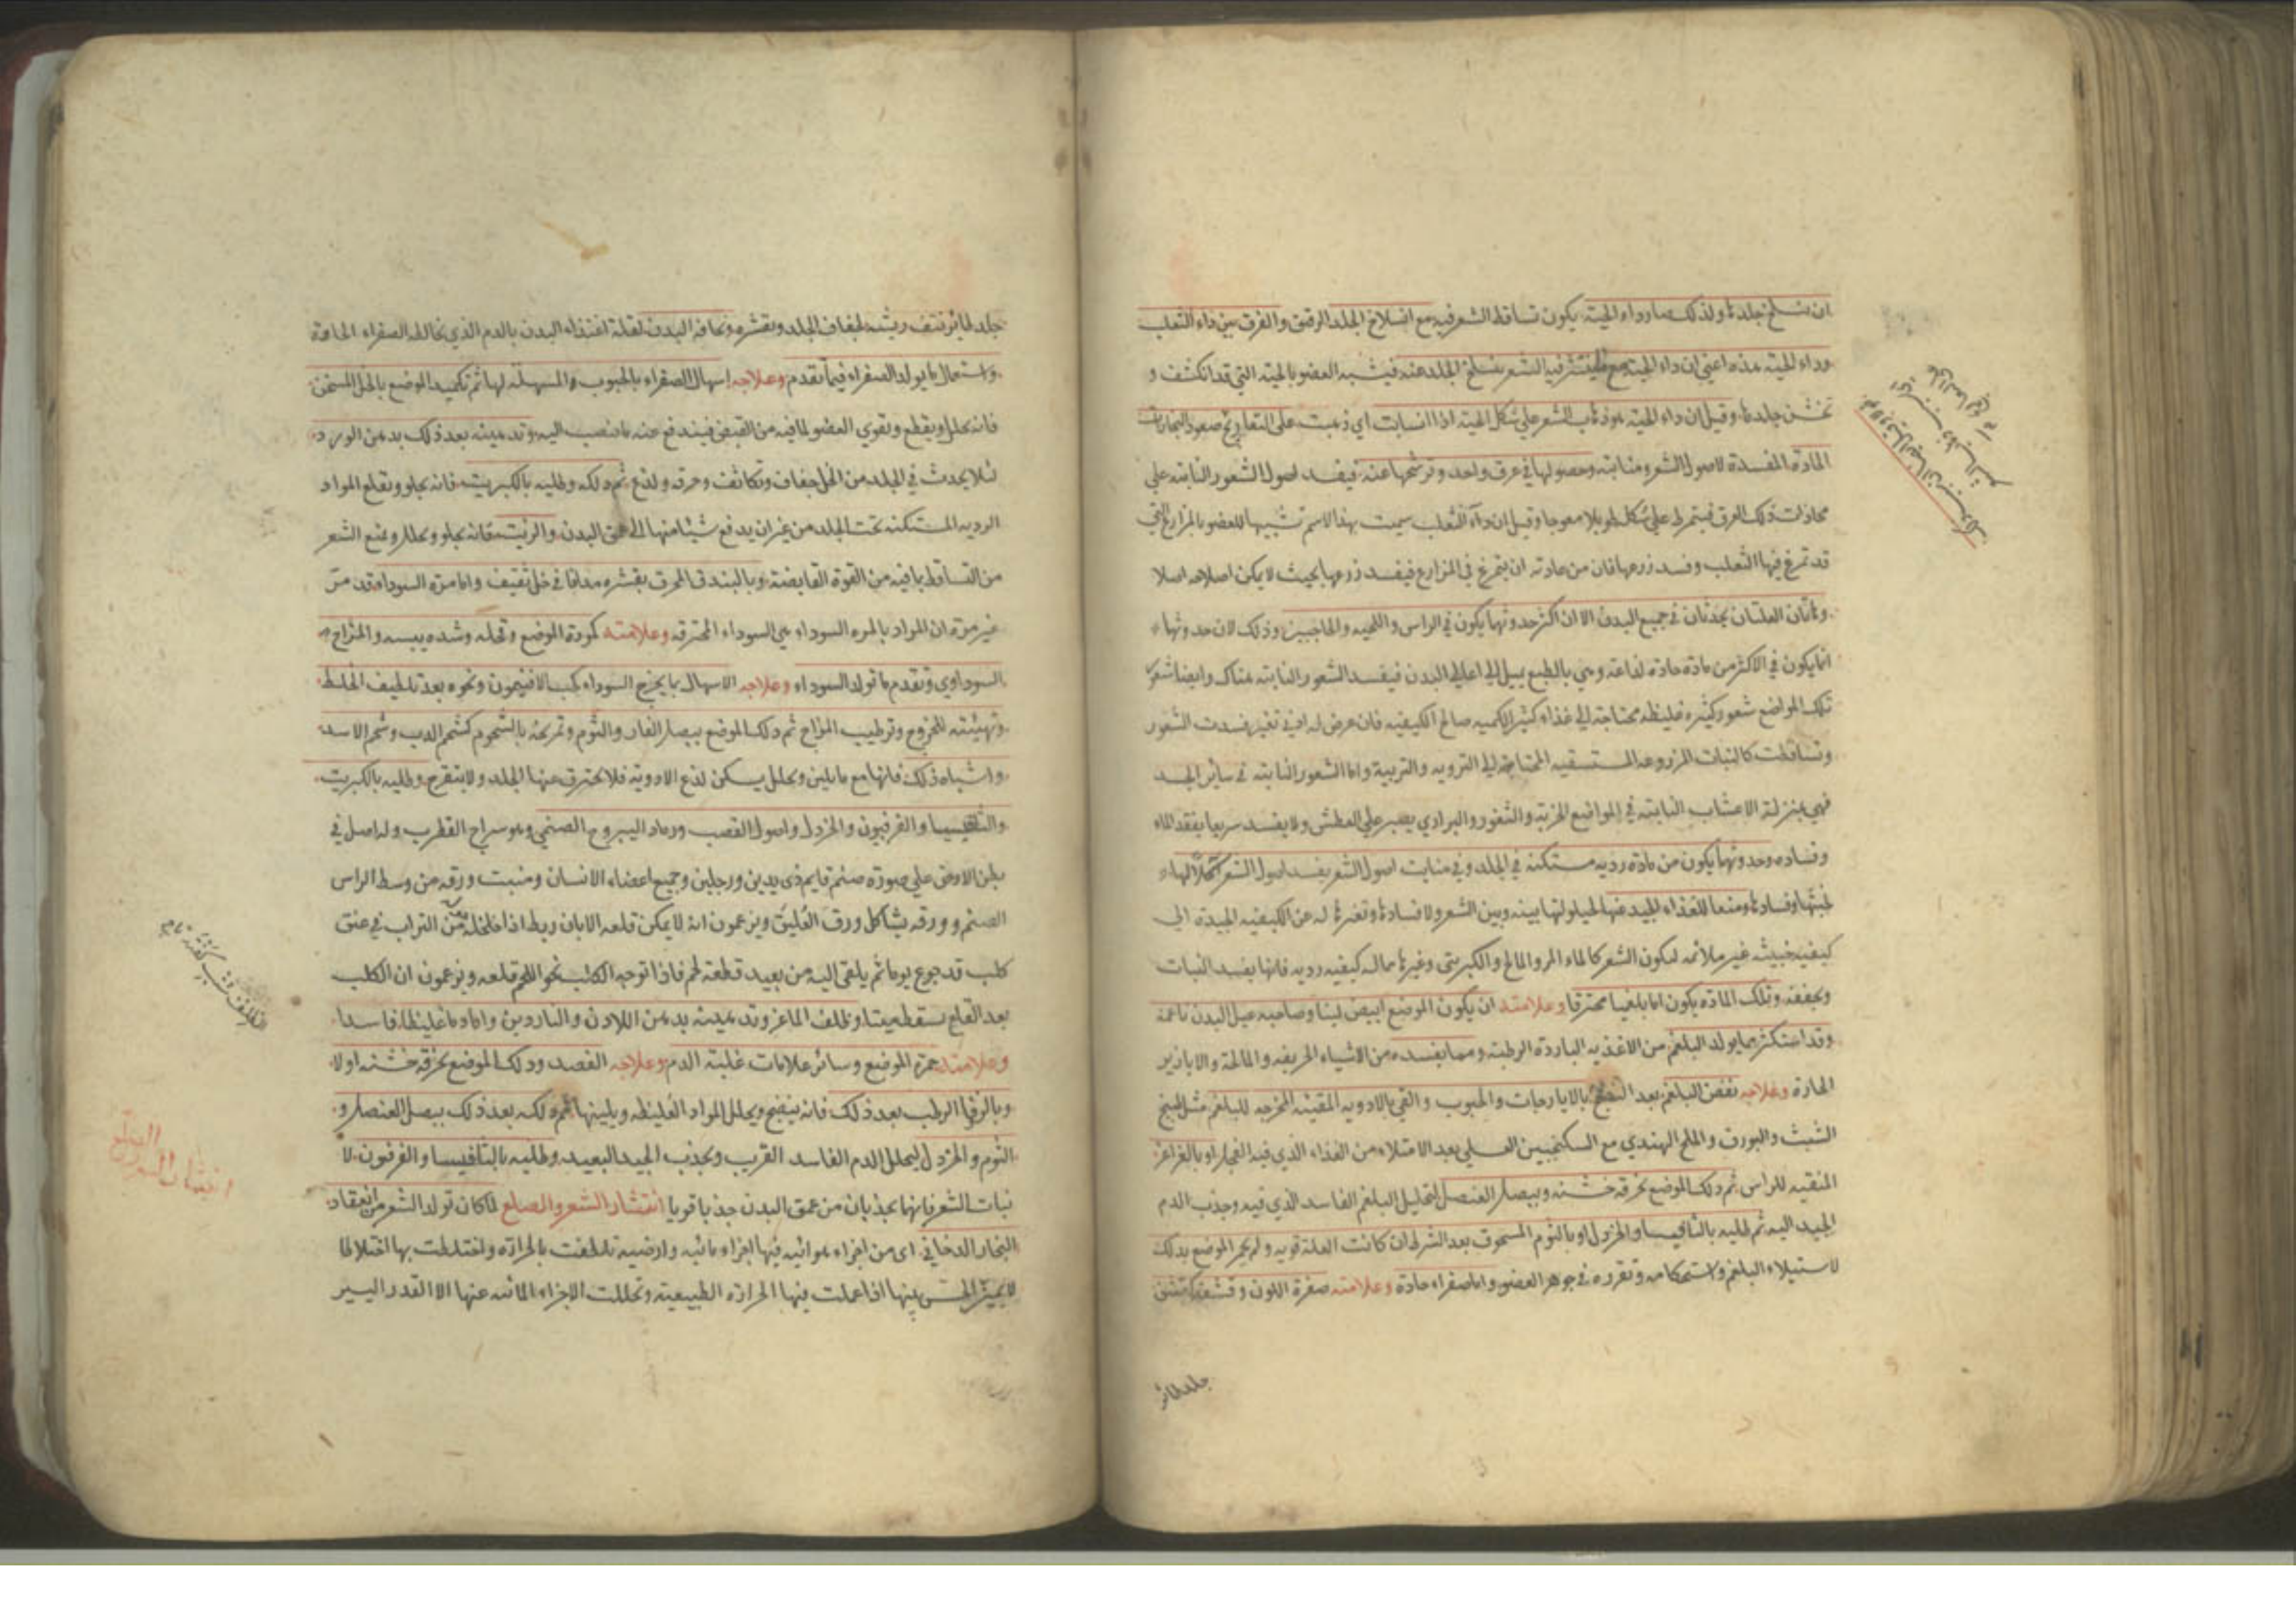 ان تسلخ جلدها ولذلك صار داء الحية يكون تساقط الشعر فيه مع انسلاخ الجلد الرقيق والفرق بين داء الثعلب
وداء الحية هذه اعني ان داء الحية مع ينتثر فيه الشعر ينسلخ الجلد عنه فيشبه العضو بالحية التي قد انكشف و
تخشن جلدها وقيل ان داء الحية هو ذهاب الشعر على شكل الحية اذا انسابت اي ذهبت على التعاريج صعود البخارات
المادة المفسدة لاصول الشعر ومنابته وحصولها في عرق واحد وترشحها عنه فيفسد اصول الشعور النابته على
محاذات ذلك العرق فيتمرط على شكل طويلا معوجا وقيل ان داء الثعلب سميت بهذا الاسم تشبيها للعضو بالمزارع التي
قد تمرغ فيها الثعلب وفسد زرعها فان من عادته ان يتمرغ في المزارع فيفسد زرعها بحيث لا يمكن اصلاحه اصلا
وهاتان العلتان يحدثان في جميع البدن الا ان اكثر حدوثهما يكون في الراس واللحيه والحاجبين وذلك لان حدوثهما
انما يكون في الاكثر من مادة حادة لذاعة وهي بالطبع يميل الى اعالي البدن فيفسد الشعور النابته هناك وايضا شعور
تلك المواضع شعور كثيره غليظه محتاجة الى غذاء كثير الكميه صالح الكيفيه فان عرض له ادنى تغير فسدت الشعور
وتساقطت كالنبات المزروعه المستسقيه المحتاجة الى الترويه والتربية واما الشعور النابته في سائر الجسد
فهي بمنزلة الاعشاب النابته في المواضع الخربة والثغور والبراري يصبر على العطش ولا يفسد سريعا بفقد الماء
وفساده وحدوثهما يكون من مادة رديه مستكنه في الجلد وفي منابت اصول الشعر يفسد اصول الشعر
لخبثها وفسادها ومنعا للغذاء الجيد عنها لحيلولتها بينه وبين الشعر ولافسادها وتغيرها له عن الكيفيه الجيدة الى
كيفيه خبيثه غير ملائمه لتكون الشعر كالماء المر والمالح والكبريتي وغيرها مما له كيفيه رديه فانها يفسد النبات
ويجففه وتلك المادة يكون اما بلغما محترقا وعلامته ان يكون الموضع ابيض لينا وصاحبه عبل البدن ناعمه
وقد استكثر مما يولد البلغم من الاغذيه البارده الرطبة ومما يفسده من الاشياء الحريفه والمالحة والابازير
الحارة وعلاجه نفض البلغم بعد النضج بالايارجات والحبوب والقي بالادويه المقيئه المخرجه للبلغم مثل طبيخ
الشبث والبورق والملح الهندي مع السكنجبين العسلي بعد الامتلاء من الغذاء الذي فيه الفجل او بالغراغر
المنقيه للراس ثم دلك الموضع بخرقه خشنه وببصل العنصل لتحليل البلغم الفاسد الذي فيه وجذب الدم
الجيد اليه ثم طليه بالثافسيا والخردل او بالثوم المسحوق بعد الشرط ان كانت العلة قويه ولم يحمر الموضع بدلك
لاستيلاء البلغم واستحكامه وتقرره في جوهر العضو واما صفراء حادة وعلامته صفرة اللون وقشفه
جلد طائر
جلد طائر نتف ريشه لجفاف الجلد وتقشره ونحافة البدن لقلة اغتذاء البدن بالدم الذي يخالطه الصفراء الحادة
واستعمال ما يولد الصفراء فيما تقدم وعلاجه اسهال الصفراء بالحبوب المسهلة لها ثم تكميد الموضع بالخل المسخن
فانه يحلل ويقطع ويقوي العضو لما فيه من القبض فيندفع عنه ما ينصب اليه وتدهينه بعد ذلك بدهن الورد
لئلا يحدث في الجلد من الخل جفاف وتكاثف وحرقه ولذع ثم دلكه وطليه بالكبريت فانه يجلو ويقلع المواد
الرديه المستكنه تحت الجلد من غير ان يدفع شيئا منها الى عمق البدن والزيت فانه يجلو ويحلل ويمنع الشعر
من التساقط بما فيه من القوة القابضة وبالبندق المحرق بقشره مدافا في خل ثقيف واما مره السوداء فقد مر
غير مرة ان المراد بالمره السوداء هي السوداء المحترقه وعلامته كمودة الموضع وقحله وشده يبسه والمزاج
السوداوي وتقدم ما تولد السوداء وعلاجه الاسهال بما يخرج السوداء كحب الافتيمون ونحوه بعد تلطيف الخلط
وتهيئته للخروج وترطيب المزاج ثم دلك الموضع ببصل الفار والثوم وتمريخه بالشحوم كشحم الدب وشحم الاسد
واشباه ذلك فانها مع ما يلين ويحلل يسكن لذع الادوية فلا يحترق عنها الجلد ولا يتقرح وطليه بالكبريت
والثافسيا والفرفيون والخردل واصول القصب ورماد اليبروح الصنمي وهو سراج القطرب وله اصل في
بطن الارض على صورة صنم قايم ذي يدين ورجلين وجميع اعضاء الانسان ومنبت ورقه من وسط الراس
الصنم وورقه يشاكل ورق العليق ويزعمون انه لا يمكن قلعه الا بان ربط اذا خلخله من التراب في عنق
كلب قد جوع يوما ثم يلقى اليه من بعيد قطعة لحم فاذا توجه الكلب نحو اللحم قلعه ويزعمون ان الكلب
بعد القلع يسقط ميتا وظلف الماعز وتدهينه بدهن اللادن والناردين واما دما غليظا فاسدا
وعلامته حمرة الموضع وسائر علامات غلبة الدم وعلاجه الفصد ودلك الموضع بخرقه خشنه اولا
وبالزفا الرطب بعد ذلك فانه ينضج ويحلل المواد الغليظه ويلينها ثم دلكه بعد ذلك ببصل العنصل و
الثوم والخردل ليحلل الدم الفاسد القريب ويجذب الجيد البعيد وطليه بالثافسيا والفرفيون لا
نبات الشعر فانهما يجذبان من عمق البدن جذبا قويا انتشار الشعر والصلع لما كان تولد الشعر من انعقاد
البخار الدخاني اى من اجزاء هوائيه فيها اجزاء مائيه وارضيه تلطفت بالحرارة واختلطت بها اختلاطا
لا يميز الحس بينها اذا عملت فيها الحرارة الطبيعية وتحللت الاجزاء المائيه عنها الا القدر اليسير
انتشار الشعر
والصلع